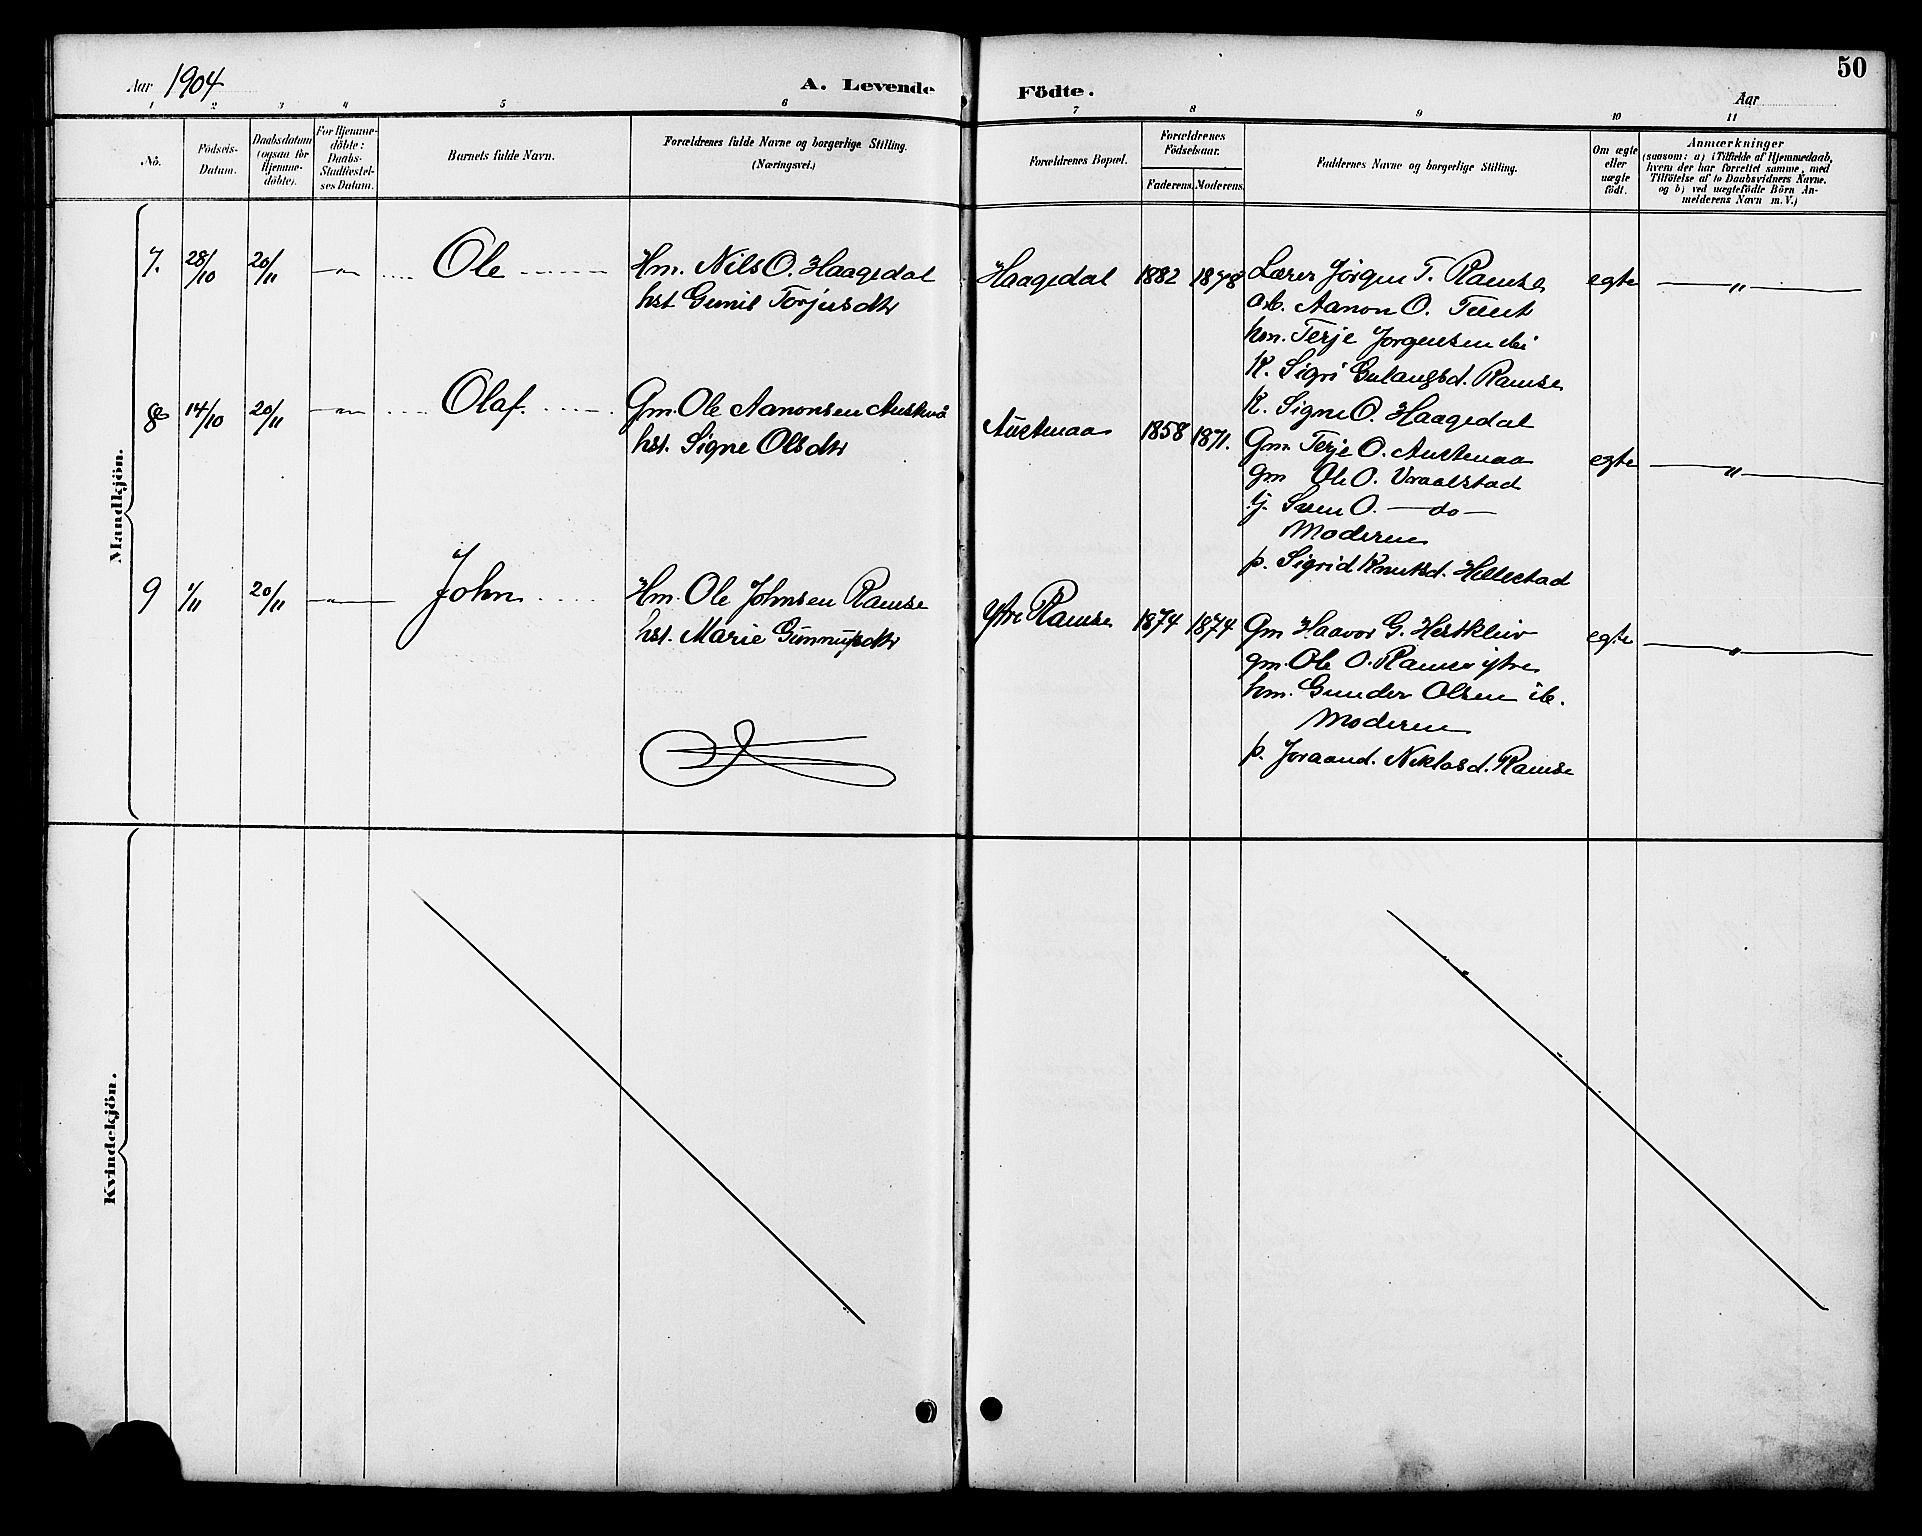 50
Aar 1904
A. Levende Födte.
Aar
1 2 3 4 5 6 7 8 9 10 11
Nô.
Födsels-Datum.
Daabsdatum (ogsaa for Hjemme-döbte).
For Hjemme-döbte: Daabs-Stadfæstel-ses Datum.
Barnets fulde Navn.
Forældrenes fulde Navne og borgerlige Stilling.
(Næringsvei.)
Forældrenes Bopæl.
Forældrenes Födselsaar.
Faderens. Moderens.
Faddernes Navne og borgerlige Stilling.
Om ægte eller uægte födt.
Anmærkninger
(saasom: a) i Tilfælde af Hjemmedaab,
hvem der har forrettet samme, med
Tilföielse af to Daabsvidners Navne.
og b) ved uægtefödte Börn An-
melderens Navn m. V.)
Mandkjön.
7. 28/10 20/11 —„— Ole Hm. Nils O. Haagedal
hst Gunil Torjusdtr
Haagedal 1882 1878
Lærer Jörgen T. Ramse
Aanon O. Tveit
hm. Terje Jorgensen
K. Sigri Gulaugsd. Ramse
K. Signe O. Haagedal
egte —„—
8 14/10 20/11 —„— Olaf. Gm. Ole Aanonsen
hst. Signe Olsdtr
Austenaa 1858 1871.
Gm. Terje O. Austenaa
gm Ole O. Vraalstad
Sven O. —do—
Moderen
p. Sigrid Knutsd. Hillestad
egte —„—
9 1/11 20/11 —„— John Hm. Ole Johnsen Ramse
hst. Marie Gunnulfsdtr
Ytre Ramse 1874 1874
Gm Haavor G. Hestkleiv
gm. Ole O. Ramse ytre
hm. Gunder Olsen ib.
Moderen
p. Joraand. Niklosd. Ramse
egte —„—
Kvindekjön.